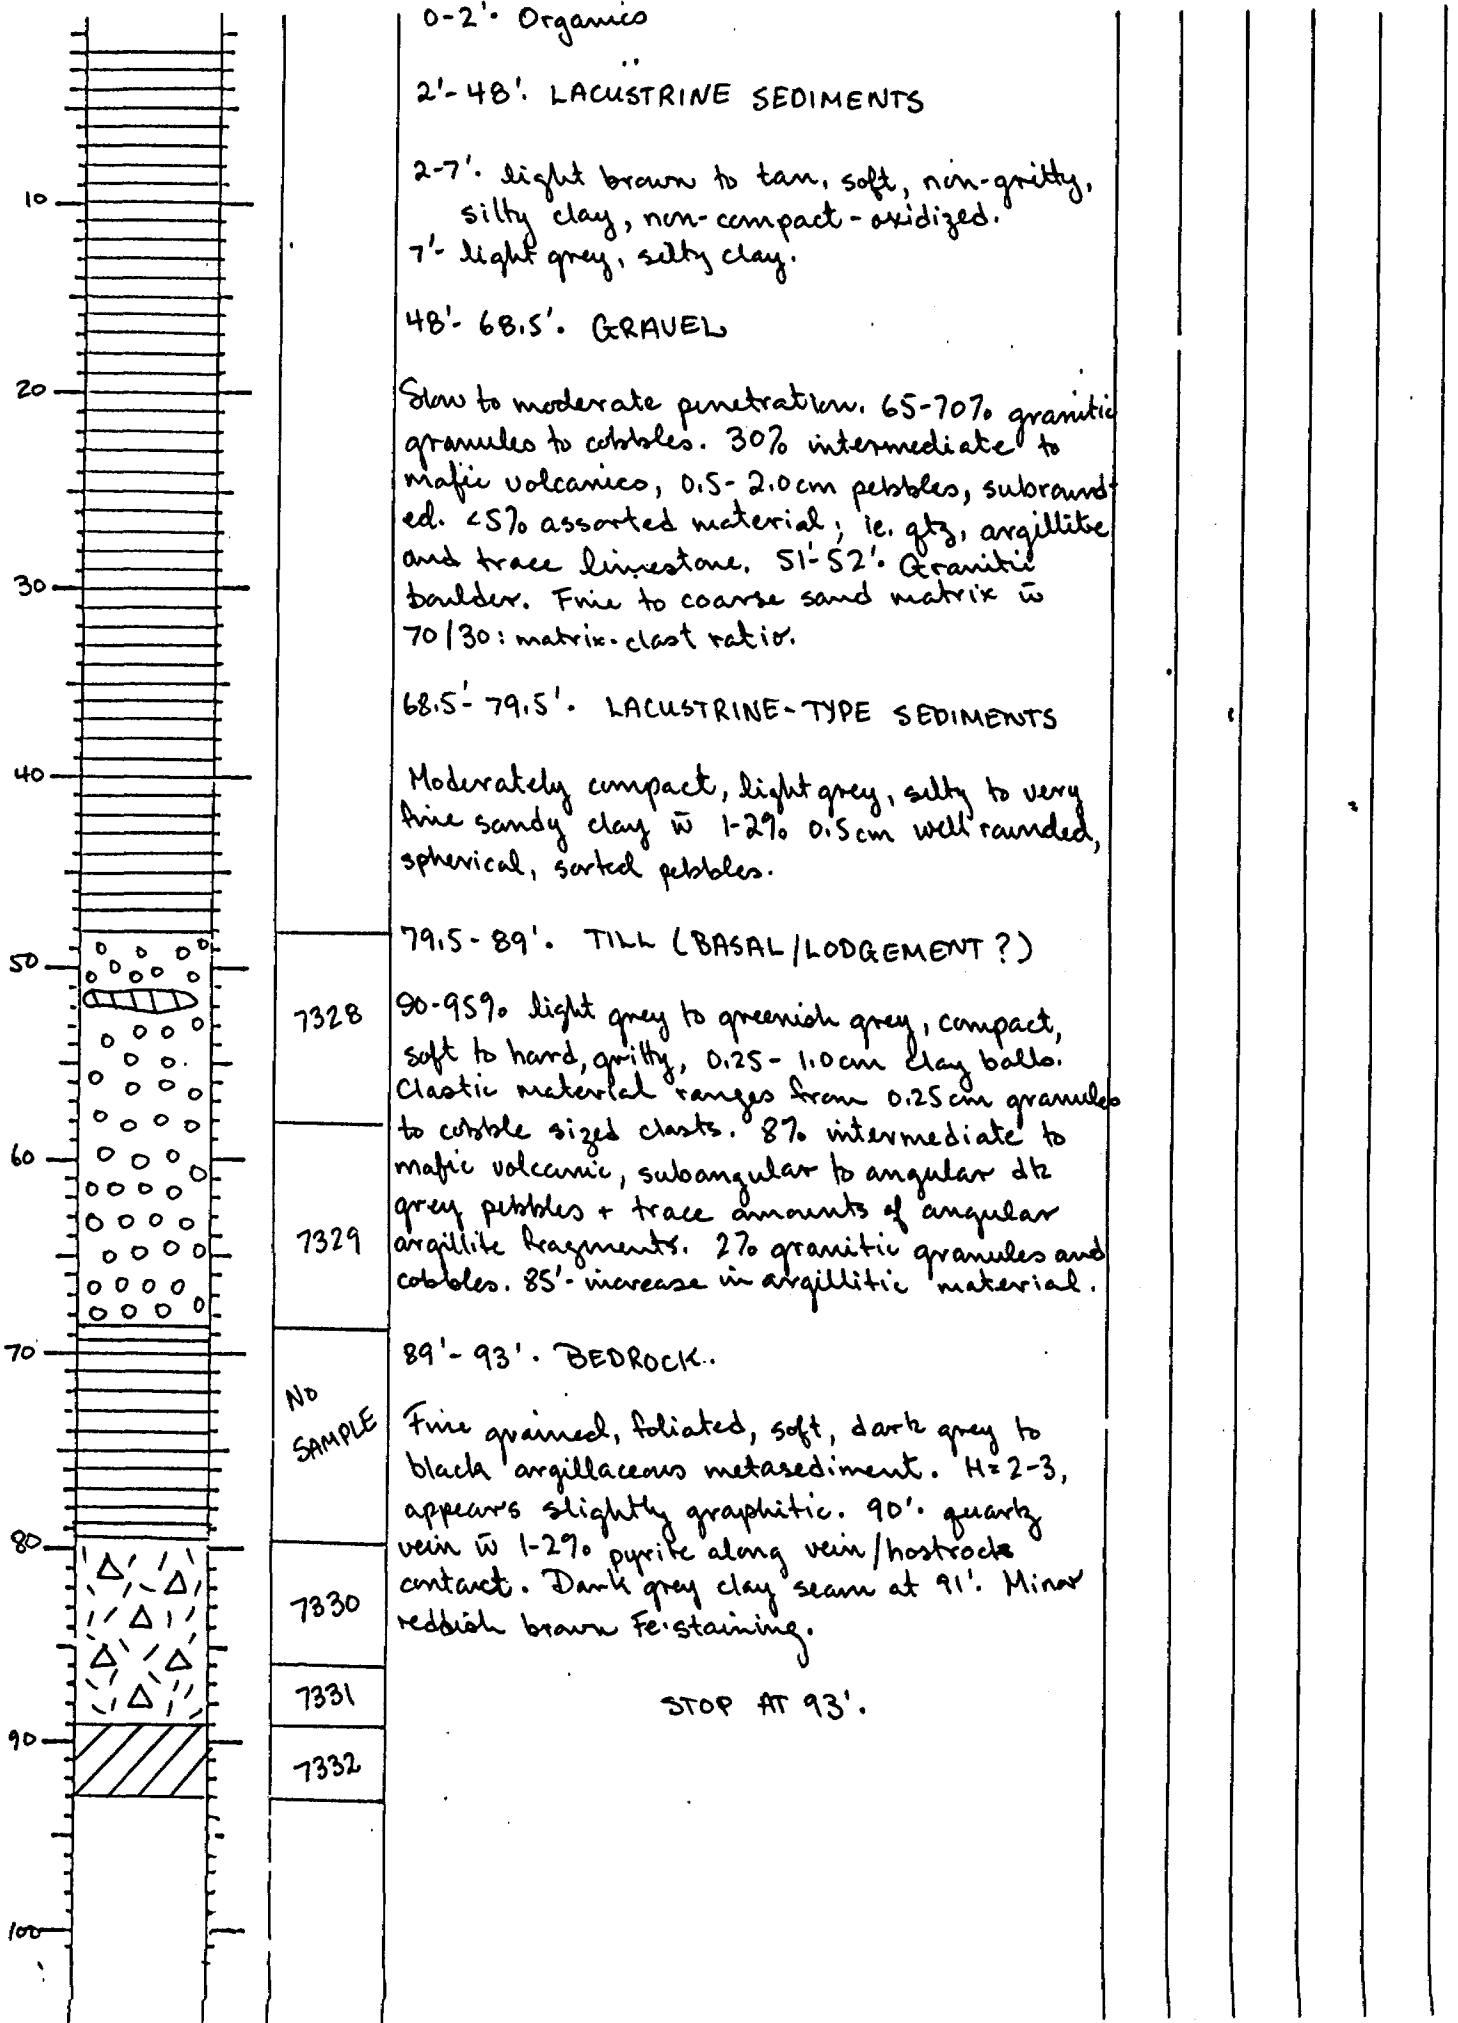 0-2'. Organics
2'-48'. LACUSTRINE SEDIMENTS
2-7'. light brown to tan, soft, non-gritty,
silty clay, non-compact - oxidized.
7'- light grey, silty clay.
48'- 68.5'. GRAVEL
Slow to moderate penetration. 65-70% granitic
granules to cobbles. 30% intermediate to
mafic volcanics, 0.5-2.0cm pebbles, subround-
ed. <5% assorted material; ie. qtz, argillite
and trace limestone. 51'-52'. Granitic
boulder. Fine to coarse sand matrix w̄
70/30: matrix-clast ratio.
68.5'- 79.5'. LACUSTRINE-TYPE SEDIMENTS
Moderately compact, light grey, silty to very
fine sandy clay w̄ 1-2% 0.5cm well rounded,
spherical, sorted pebbles.
79.5-89'. TILL (BASAL/LODGEMENT?)
90-95% light grey to greenish grey, compact,
soft to hard, gritty, 0.25-1.0cm clay balls.
Clastic material ranges from 0.25cm granules
to cobble sized clasts. 8% intermediate to
mafic volcanic, subangular to angular dk
grey pebbles + trace amounts of angular
argillite fragments. 2% granitic granules and
cobbles. 85'- increase in argillitic material.
89'-93'. BEDROCK.
Fine grained, foliated, soft, dark grey to
black argillaceous metasediment. H=2-3,
appears slightly graphitic. 90'. quartz
vein w̄ 1-2% pyrite along vein/hostrock
contact. Dark grey clay seam at 91'. Minor
reddish brown Fe-staining.
STOP AT 93'.
10
20
30
40
50
60
70
80
90
100
7328
7329
NO
SAMPLE
7330
7331
7332